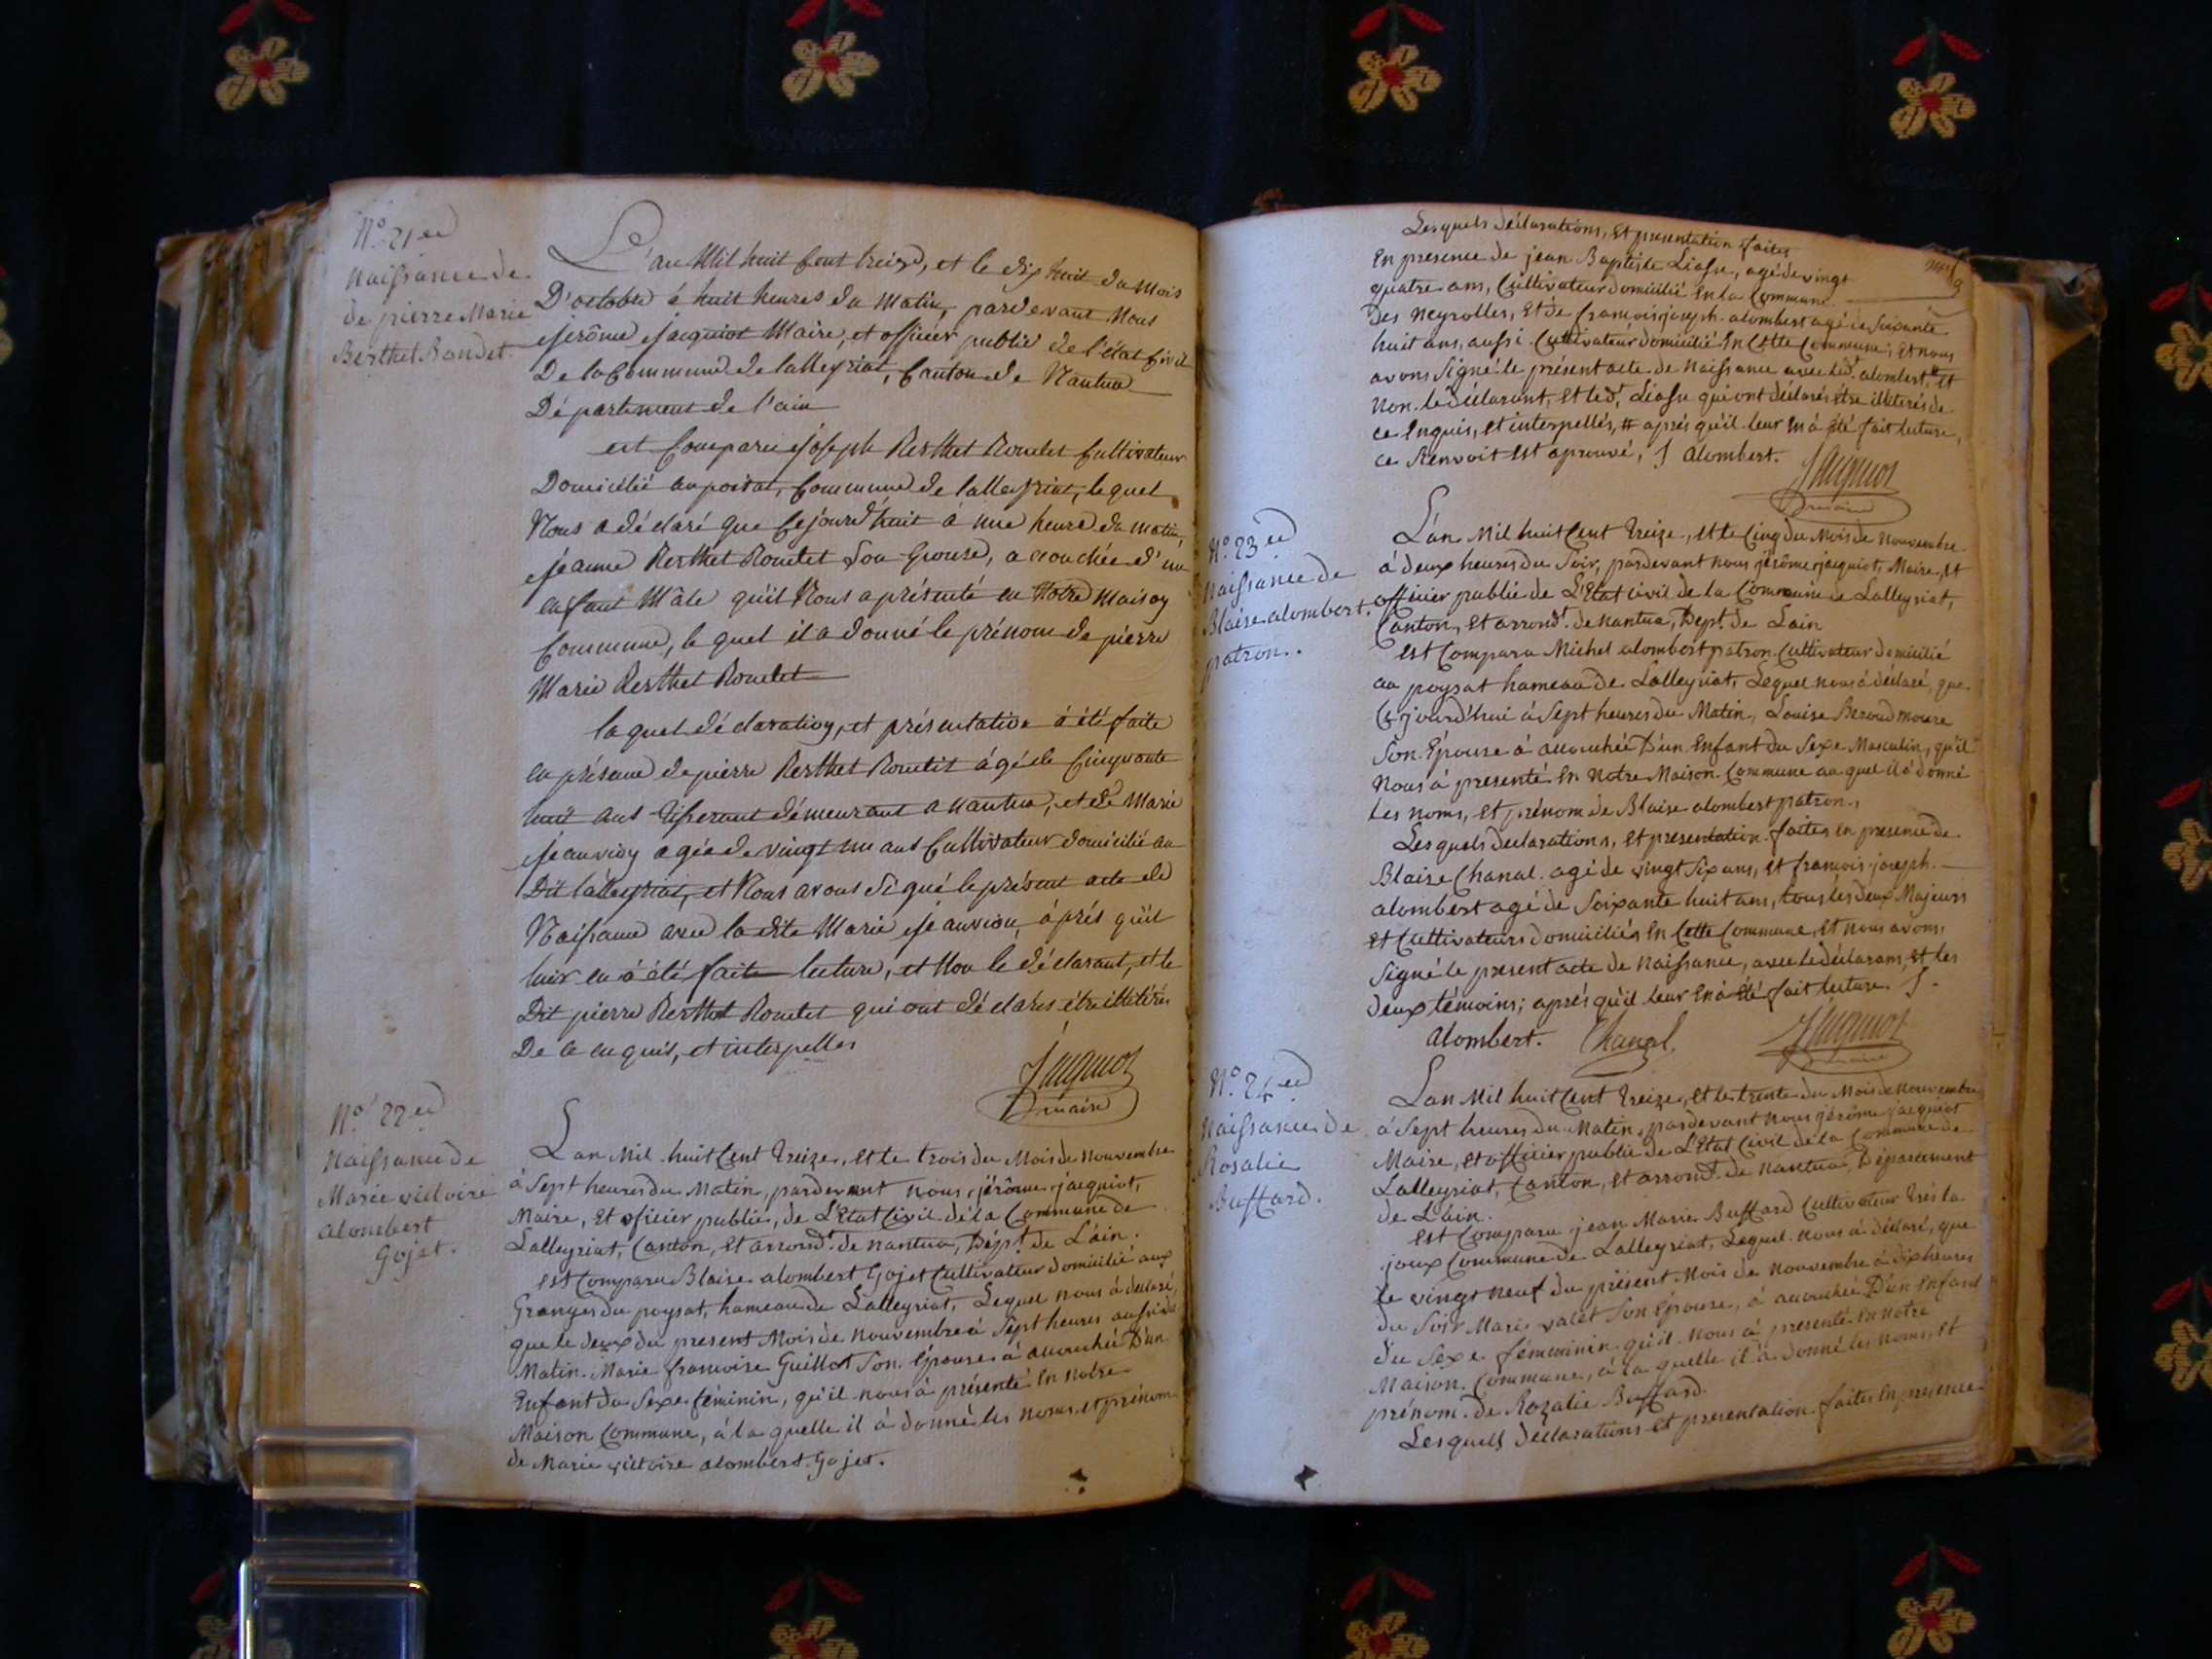 N.º 21.
Naissance de
de pierre Marie
Berthet Rondet.
L'an Mil huit Cent treize, et le dix huit du Mois
D'octobre à huit heures du Matin, pardevant Nous
jerôme jacquiot Maire, et officier public de l'état Civil
De la Commune de lalleyriat, Canton de Nantua
Département de l'ain
est Comparu joseph Berthet Roudet Cultivateur
Domicilié au poisat, Commune de lalleyriat, lequel
Nous a déclaré que Cejourd'huit à une heure du matin,
jeanne Berthet Roudet Son Epouse, a accouchée d'un
enfant Mâle qu'il Nous a présenté en Notre Maison
Commune, le quel il a donné le prénom de pierre
Marie Berthet Roudet
la quel déclaration, et présentation à été faite
en présence de pierre Berthet Roudet âgé de Cinquante
huit ans tisserant démeurant a nantua, et de Marie
jeanvion agée de vingt un ans Cultivateur domicilié au
Dit lalleyriat, et Nous avons Signé le présent acte de
Naissance avec la dite Marie jeanvion, après qu'il
luir en à été faite lecture, et Non le déclarant, et le
Dit pierre Berthet Roudet qui ont déclarés être illitérés
De ce enquis, et interpellés
Jacquiot
maire
N.º 22.
Naissance de
Marie victoire
alombert
Gojet.
L'an Mil huit Cent treize, et le trois du Mois de Nouvembre
à Sept heures du Matin, pardevant nous jérôme jacquiot,
Maire, et oficier public, de L'Etat Civil de la Commune de
Lalleyriat, Canton, et arrond.t de nantua, Dép.t de L'ain.
est Comparu Blaise alombert Gojet Cultivateur domicilié aux
Granges du poysat, hameau de Lalleyriat, Lequel nous à declaré,
que le deux du present Mois de Nouvembre à Sept heures aussi du
Matin. Marie francoise Guillot Son Epouse à accouchée D'un
Enfant du Sexe féminin, qu'il nous à présenté En notre
Maison Commune, à la quelle il à donné les noms et prénom
de Marie victoire alombert Gojet.
Lesquels déclarations, et presentation faites
En presence de jean Baptiste Liasse, agé de vingt
quatre ans, Cultivateur domicilié En la Commune
des neyrolles, et de francois joseph alombert agé de Soixante
huit ans, aussi Cultivateur domicilié En Cette Commune; et nous
avons Signé le présent acte de Naissance avec led.t alombert, et
Non le déclarant, et led.t Liasse qui ont déclarés être illiterés de
ce Enquis, et interpellés, # aprés qu'il leur En à été fait lecture,
ce Renvoit est aprouvé, J alombert.
Jacquiot
maire
N.º 23.
Naissance de
Blaise alombert
patron.
L'an Mil huit Cent treize, et le Cinq du Mois de Nouvembre
à deux heures du Soir, pardevant nous jérôme jacquiot, Maire, et
officier public de L'Etat Civil de la Commune de Lalleyriat,
Canton, et arrond.t de nantua, Dep.t de Lain
est Comparu Michel alombert patron Cultivateur domicilié
au poysat hameau de Lalleyriat, Lequel nous à déclaré, que
Cejourd'hui à Sept heures du Matin, Louise Beroud moure
Son Epouse à accouchée D'un Enfant du Sexe Masculin, qu'il
nous à presenté En notre Maison Commune au quel il à donné
les noms, et prénom de Blaise alombert patron.,
Lesquels declarations, et presentation faites En presence de
Blaise Chanal agé de vingt Six ans, et francois joseph
alombert agé de Soixante huit ans, tous les deux Majeurs
et Cultivateurs domiciliés En Cette Commune, et nous avons,
Signé le present acte de Naissance, avec le déclarant, et les
deux témoins; aprés qu'il leur En à été fait lecture. J.
alombert. Chanal. Jacquiot
maire
N.º 24.
Naissance de
Rosalie
Buffard.
L'an Mil huit Cent treize, et le trente du Mois de Nouvembre
à Sept heures du Matin, pardevant nous jérôme jacquiot
Maire, et officier public de L'Etat Civil de la Commune de
Lalleyriat, Canton, et arrond.t de nantua, Département
de L'ain.
est Comparu jean Marie Buffard Cultivateur trés la
joux Commune de Lalleyriat, Lequel nous à déclaré, que
le vingt neuf du présent Mois de Nouvembre à dix heures
du Soir Marie valet Son Epouse, à accouchée D'un Enfant
du Sexe fémininin qu'il nous à presenté En notre
Maison Commune, à la quelle il à donné les noms, et
prénom de Rozalie Buffard.
Lesquels déclarations et presentation faites En presence